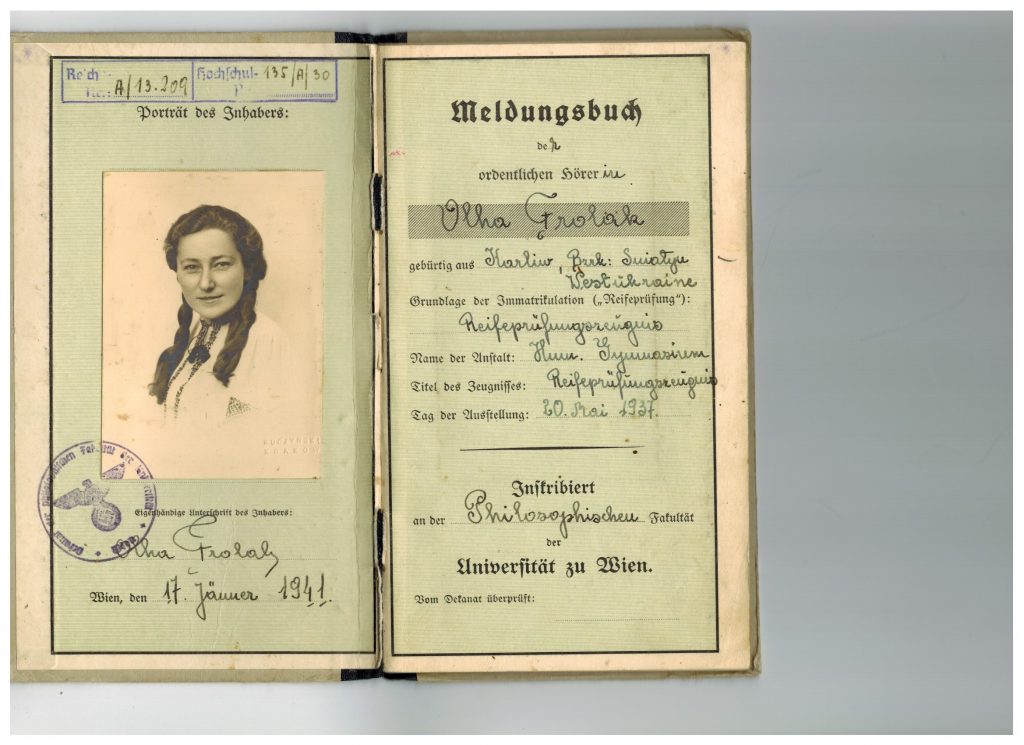 Reich
Nr.: A/13.209
Hochschul- 135/A/30
Porträt des Inhabers:
KUCZYŃSKI
KRAKÓW
Philosophischen Fakultät der
Eigenhändige Unterschrift des Inhabers:
Olha Frolak
Wien, den 17. Jänner 1941.
Meldungsbuch
der
ordentlichen Hörerin
Olha Frolak
gebürtig aus Karliw, Bzrk: Sniatyn
Westukraine
Grundlage der Immatrikulation („Reifeprüfung“):
Reifeprüfungszeugnis
Name der Anstalt: Hum. Gymnasium
Titel des Zeugnisses: Reifeprüfungszeugnis
Tag der Ausstellung: 20. Mai 1937.
Inskribiert
an der Philosophischen Fakultät
der
Universität zu Wien.
Vom Dekanat überprüft: